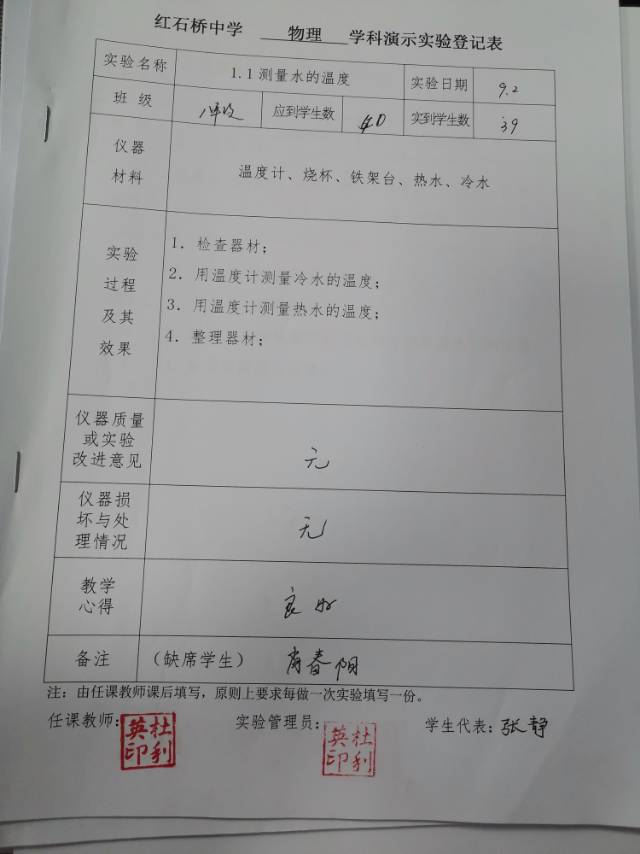 红石桥中学 物理 学科演示实验登记表
实验名称 1.1测量水的温度 实验日期 9.2
班 级 应到学生数 40 实到学生数 39
仪器
材料
温度计、烧杯、铁架台、热水、冷水
实验
过程
及其
效果
1. 检查器材；
2. 用温度计测量冷水的温度；
3. 用温度计测量热水的温度；
4. 整理器材；
仪器质量
或实验
改进意见
无
仪器损
坏与处
理情况
无
教学
心得
良好
备注 （缺席学生） 肖春阳
注：由任课教师课后填写，原则上要求每做一次实验填写一份。
任课教师： 杜利英印 实验管理员： 杜利英印 学生代表：张静